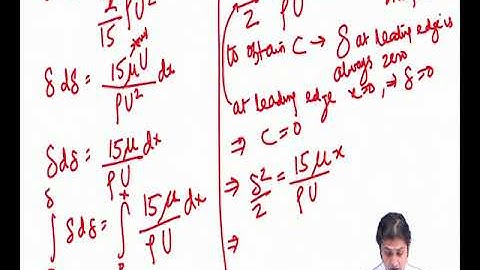 2/15 ρU²
δdδ = 15μU/ρU² dx
δdδ = 15μ/ρU dx
∫ δdδ = ∫ 15μ/ρU dx
2 ρU
to obtain C → δ at leading edge is
always zero
at leading edge x=0, ⇒ δ=0
⇒ C=0
⇒ δ²/2 = 15μx/ρU
⇒